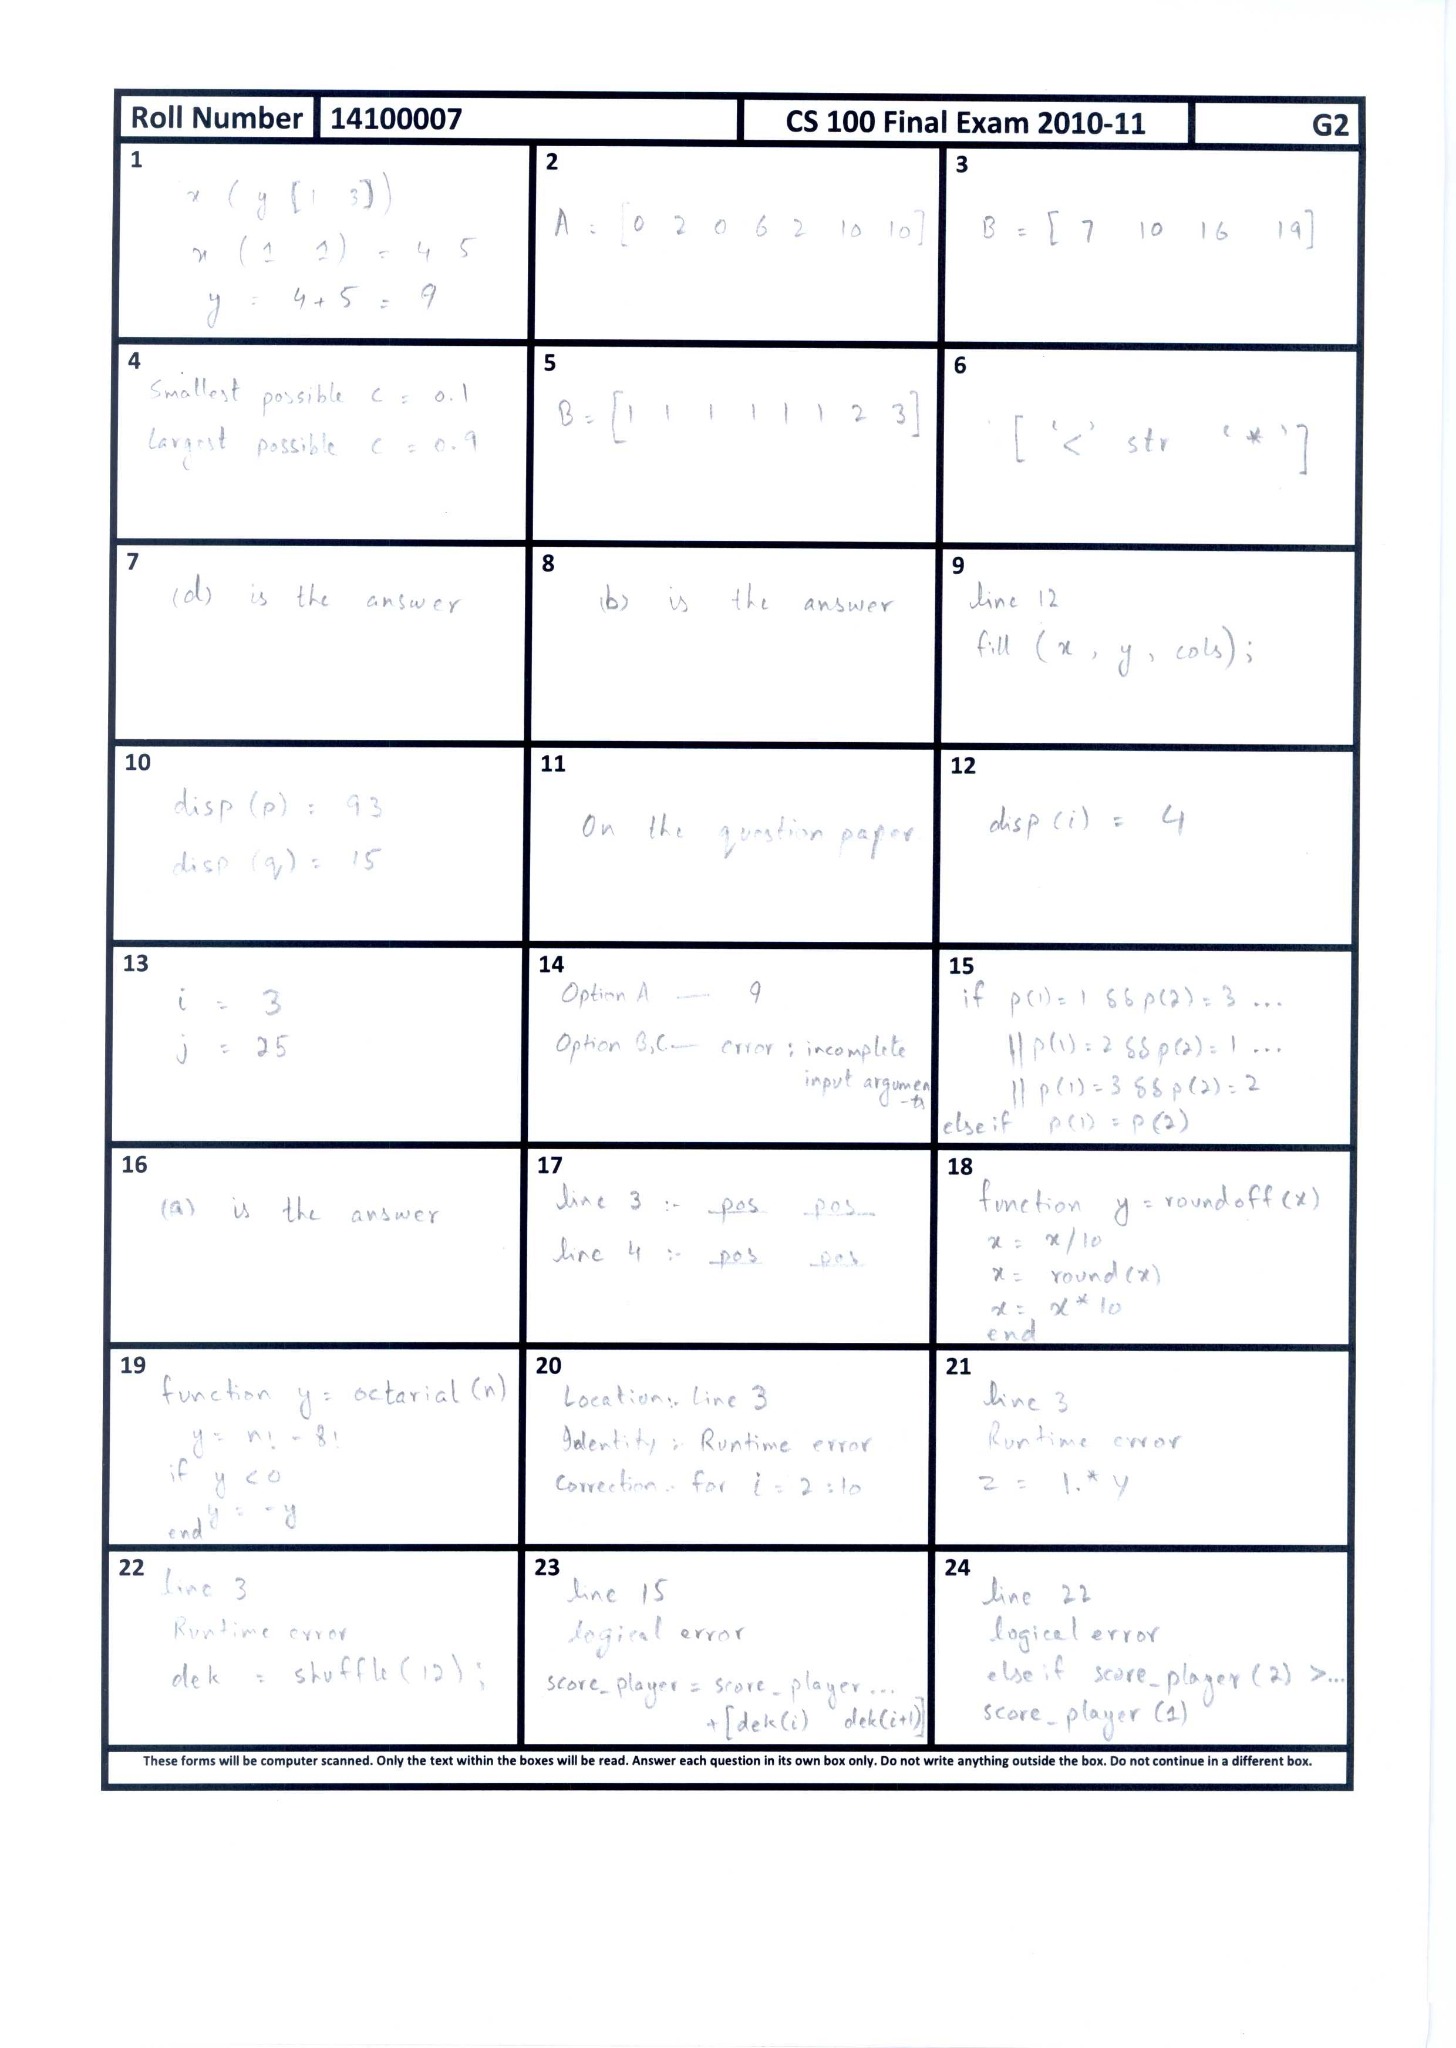 Roll Number 14100007 CS 100 Final Exam 2010-11 G2
1
x ( y [1 3])
x (1 1) = 4 5
y = 4+5 = 9
2
A = [0 2 0 6 2 10 10]
3
B = [ 7 10 16 19]
4
Smallest possible c = 0.1
Largest possible c = 0.9
5
B = [1 1 1 1 1 1 2 3]
6
[ '<' str '*']
7
(d) is the answer
8
(b) is the answer
9
line 12
fill (x, y, cols);
10
disp (p) = 93
disp (q) = 15
11
On the question paper
12
disp (i) = 4
13
i = 3
j = 25
14
Option A — 9
Option B,C — error : incomplete
input argumen
-ts
15
if p(1)=1 && p(2)=3 ...
|| p(1)=2 && p(2)=1 ...
|| p(1)=3 && p(2)=2
elseif p(1) = p(2)
16
(a) is the answer
17
line 3 :- pos pos
line 4 :- pos pos
18
function y = roundoff(x)
x = x/10
x = round(x)
x = x*10
end
19
function y = octarial (n)
y = n! - 8!
if y <0
y = -y
end
20
Location:- Line 3
Identity :- Runtime error
Correction :- for i = 2:10
21
line 3
Runtime error
z = 1.* y
22
line 3
Runtime error
dek = shuffle(12);
23
line 15
logical error
score_player = score_player...
+[dek(i) dek(i+1)]
24
line 22
logical error
elseif score_player (2) >...
score_player (1)
These forms will be computer scanned. Only the text within the boxes will be read. Answer each question in its own box only. Do not write anything outside the box. Do not continue in a different box.